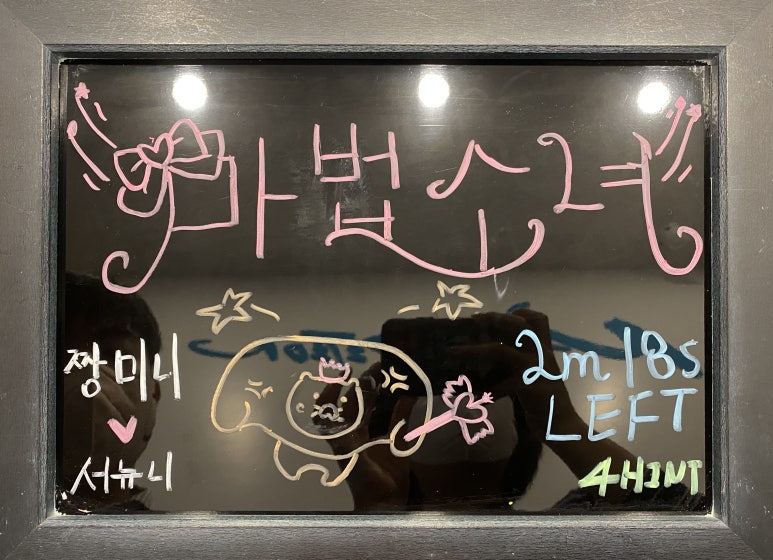 마법소녀
짱미니
♥
서뉴니
2m 18s
LEFT
4HINT